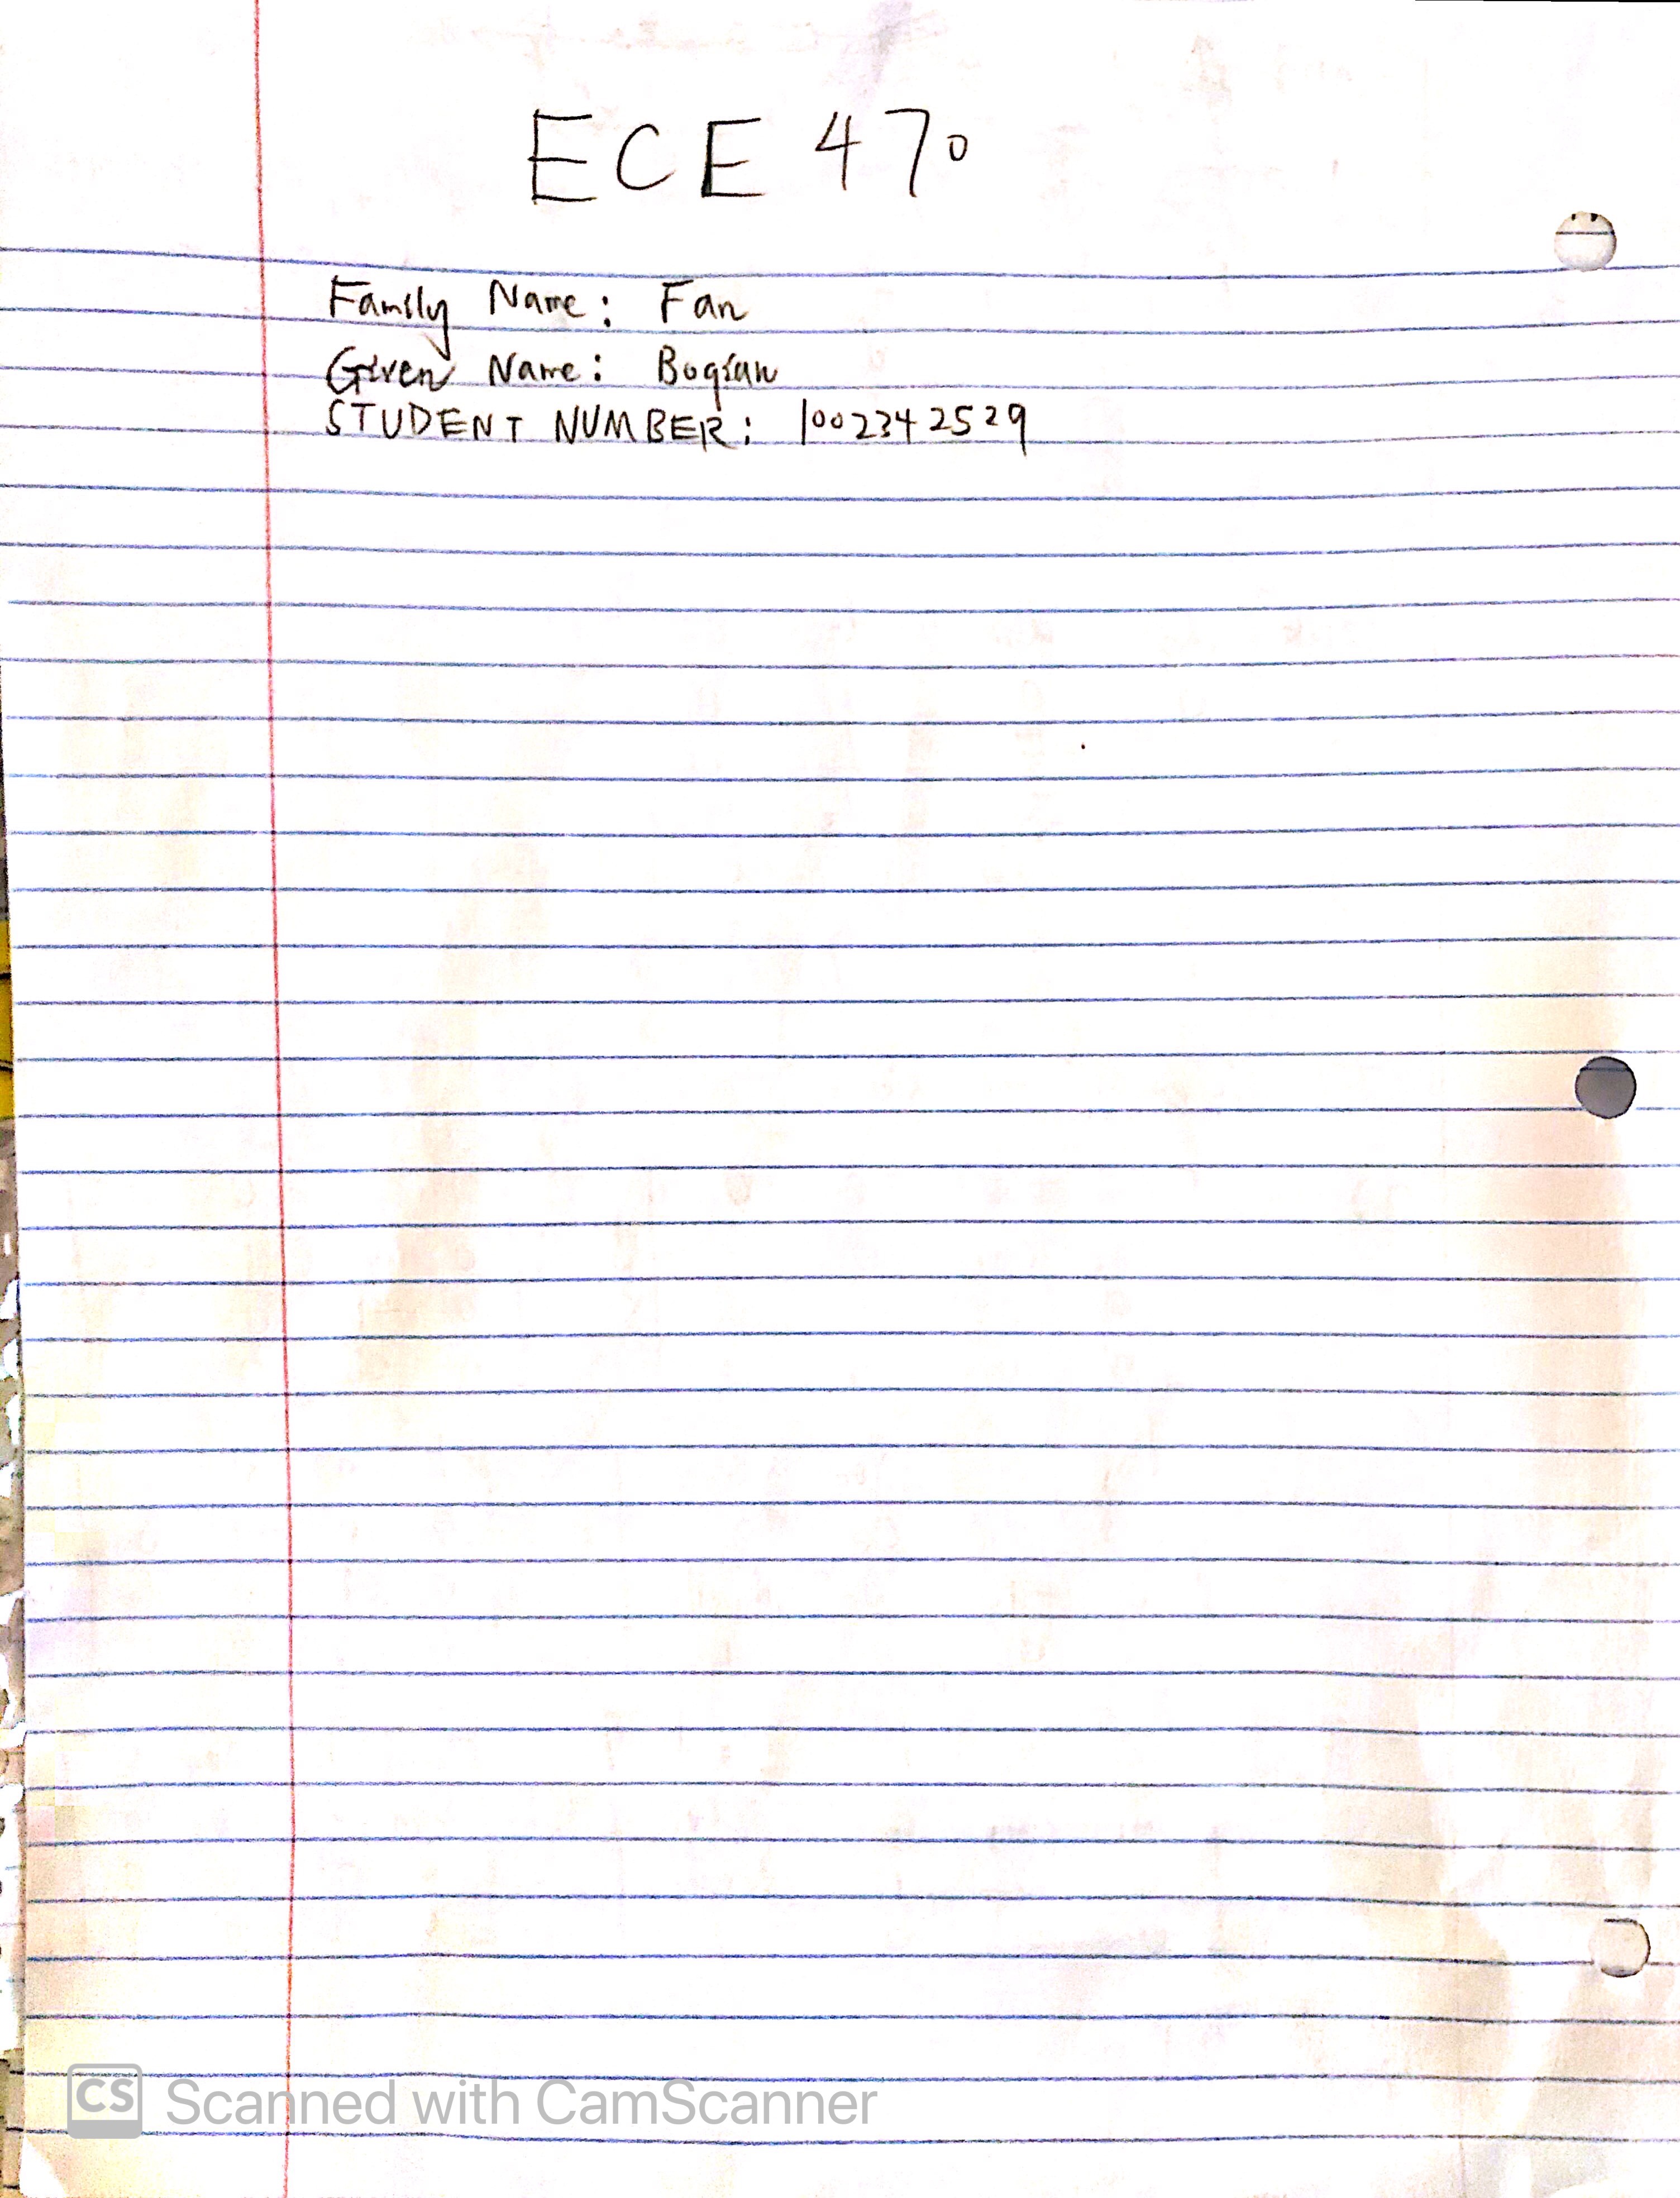 ECE 470
Family Name: Fan
Given Name: Boqian
STUDENT NUMBER: 1002342529
CS Scanned with CamScanner